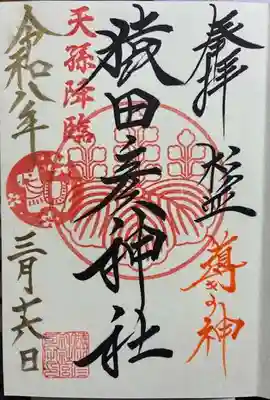 奉拝
導きの神
猿田彦神社
天孫降臨
令和八年
三月十六日